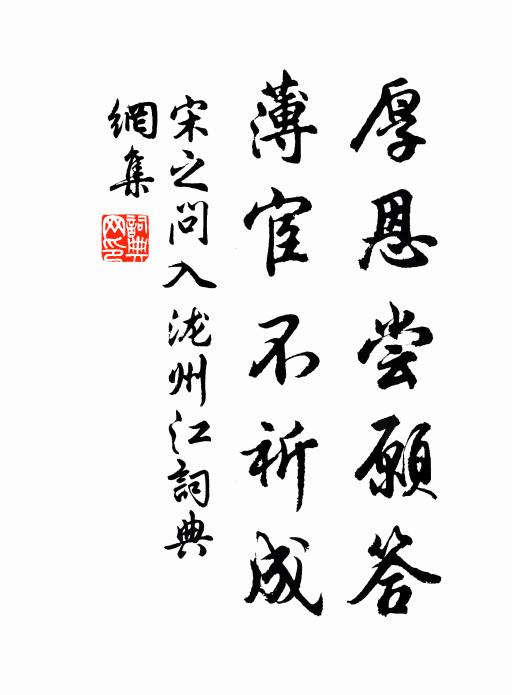 厚恩尝願答
薄宦不祈成
宋之问入泷州江詞典
網集
詞典网印